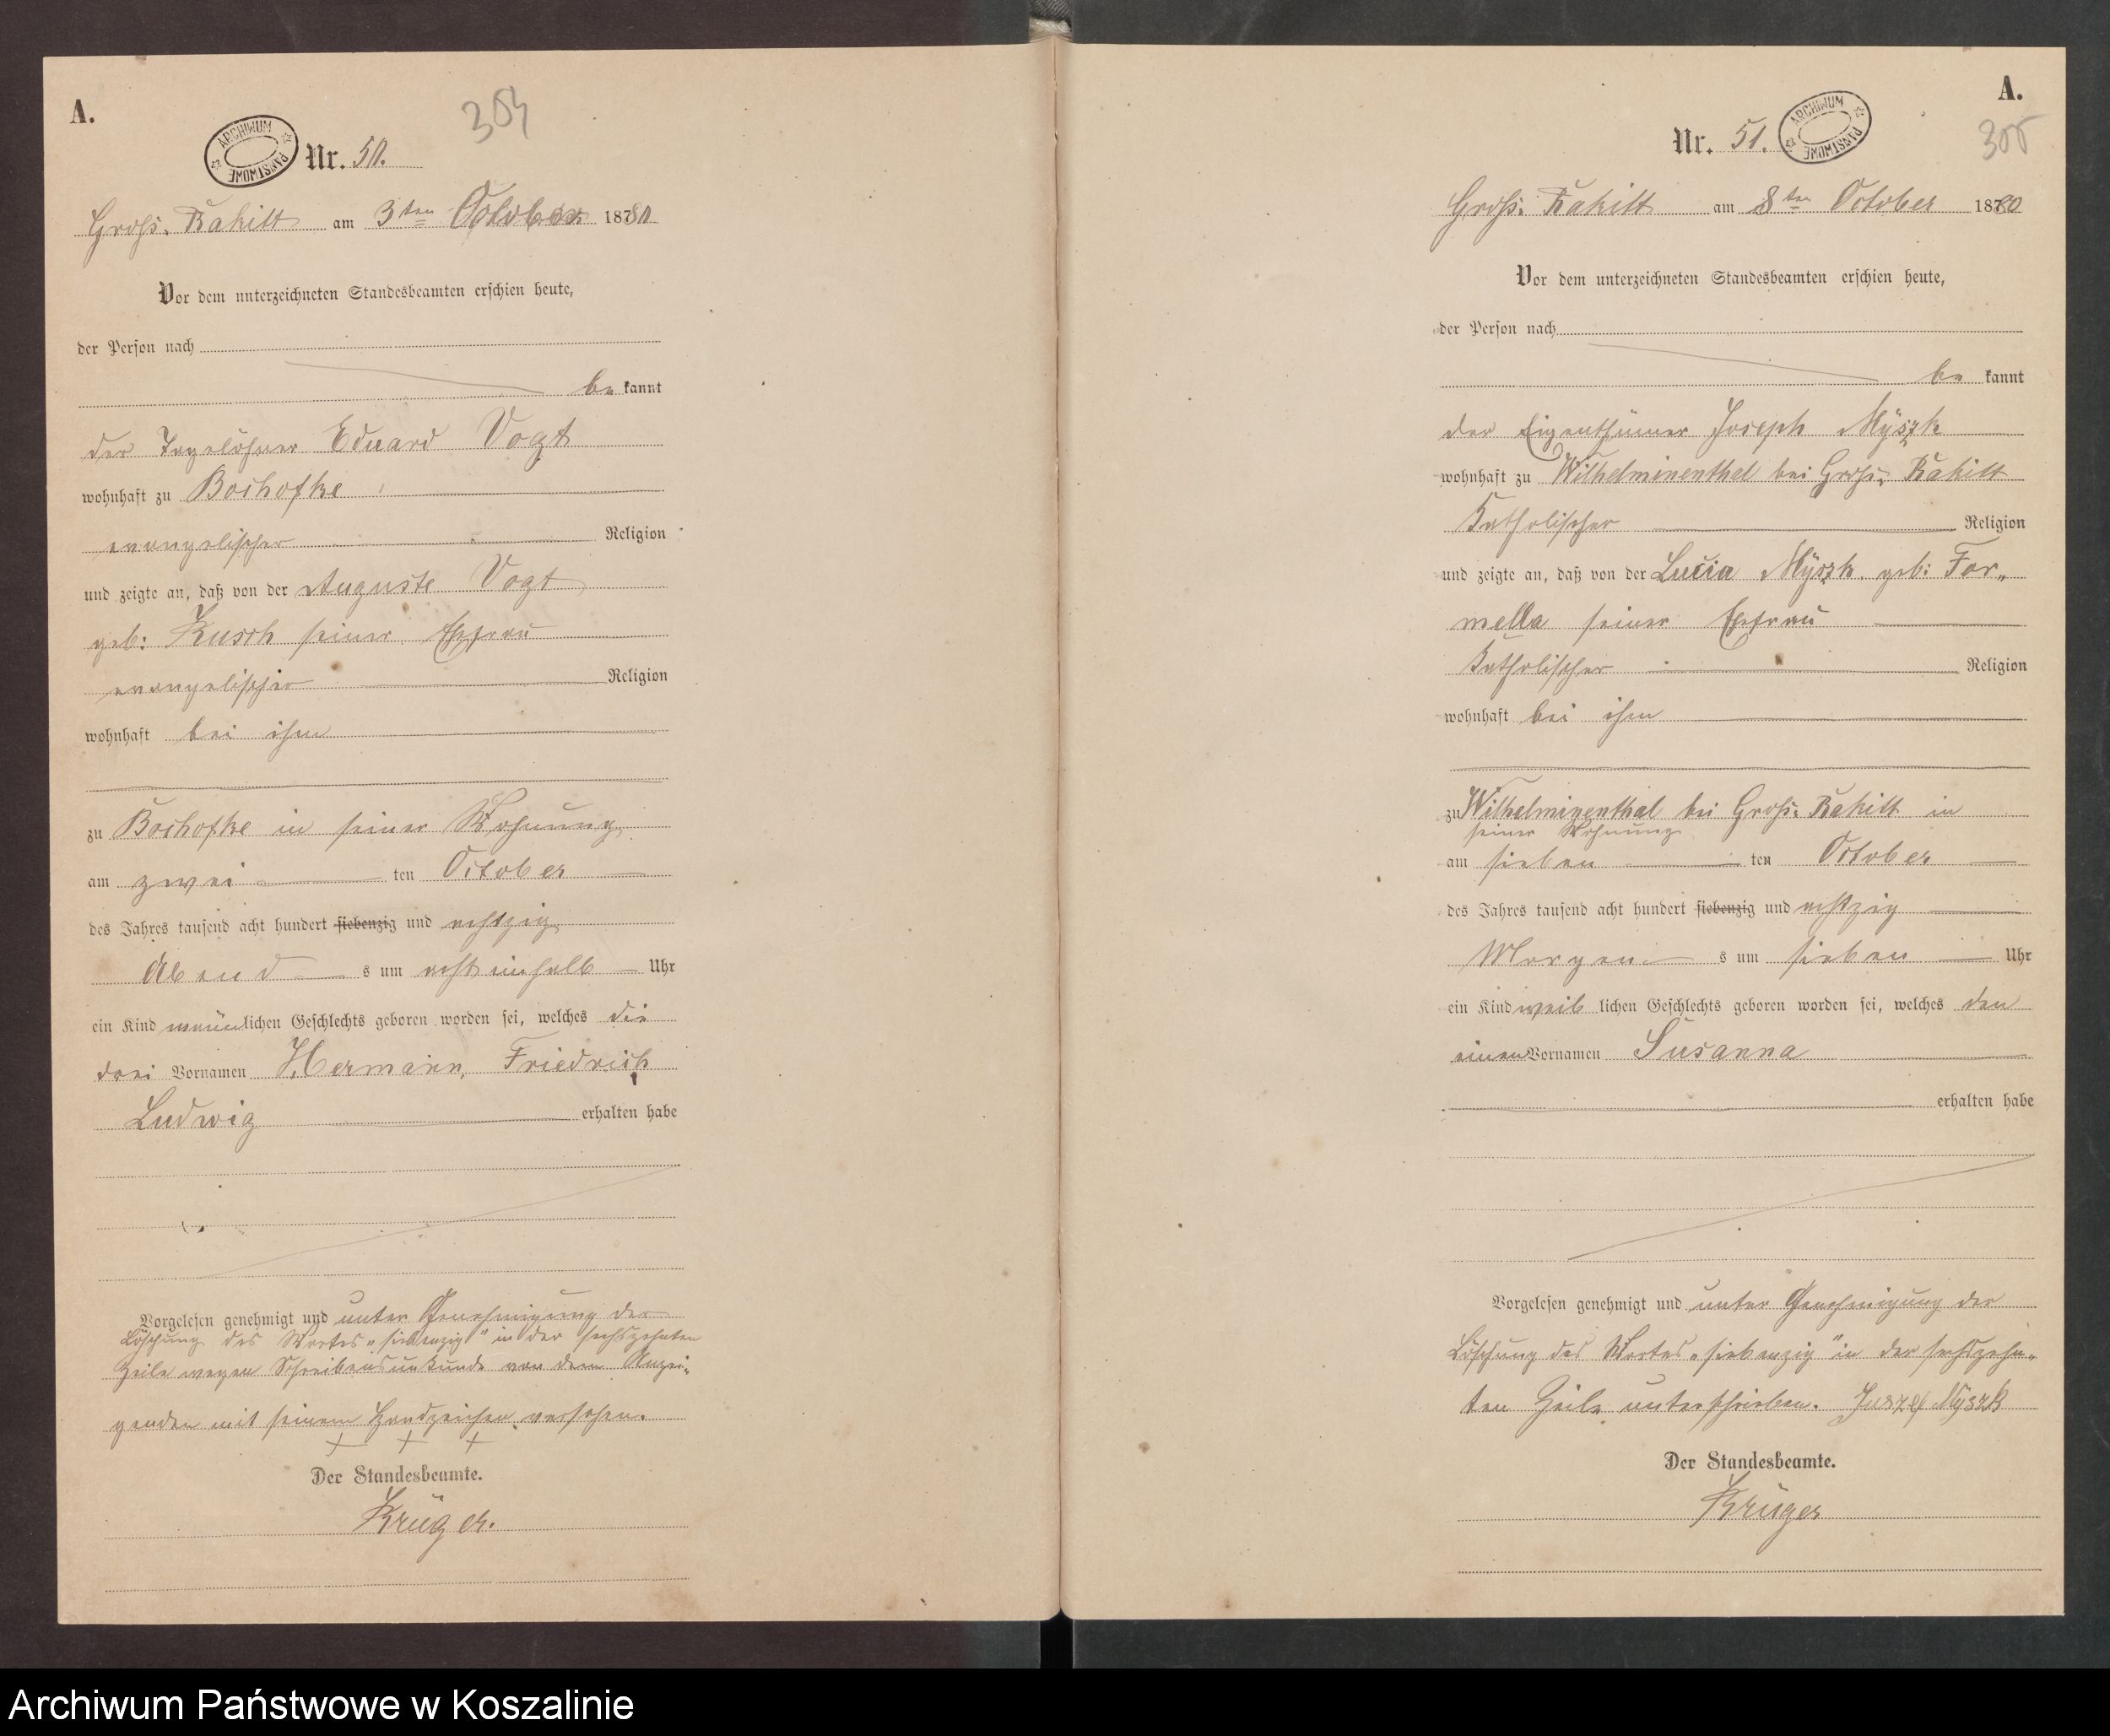 A.
304
ARCHIWUM PAŃSTWOWE
Nr. 50.
Groß-Rakitt am 3ten October 1880
Vor dem unterzeichneten Standesbeamten erschien heute,
der Person nach
be kannt
der Tagelöhner Eduard Vogt
wohnhaft zu Bochofke
evangelischer Religion
und zeigte an, daß von der Auguste Vogt
geb: Kusch seiner Ehefrau
evangelischer Religion
wohnhaft bei ihm
zu Bochofke in seiner Wohnung
am zwei ten October
des Jahres tausend acht hundert siebenzig und achtzig
Abend s um acht einhalb Uhr
ein Kind männlichen Geschlechts geboren worden sei, welches die
drei Vornamen Hermann, Friedrich
Ludwig erhalten habe
Vorgelesen genehmigt und unter Genehmigung der
Löschung des Wortes „siebenzig" in der sechszehnten
Zeile wegen Schreibensunkunde von dem Anzei-
genden mit seinem Handzeichen versehen.
+ + +
Der Standesbeamte.
Krüger.
A.
305
ARCHIWUM PAŃSTWOWE
Nr. 51.
Groß-Rakitt am 8ten October 1880
Vor dem unterzeichneten Standesbeamten erschien heute,
der Person nach
be kannt
der Eigenthümer Joseph Myszk
wohnhaft zu Wilhelminenthal bei Groß-Rakitt
Katholischer Religion
und zeigte an, daß von der Lucia Myszk geb: For-
mella seiner Ehefrau
Katholischer Religion
wohnhaft bei ihm
zu Wilhelminenthal bei Groß-Rakitt in
seiner Wohnung
am sieben ten October
des Jahres tausend acht hundert siebenzig und achtzig
Morgen s um sieben Uhr
ein Kind weib lichen Geschlechts geboren worden sei, welches den
einen Vornamen Susanna
erhalten habe
Vorgelesen genehmigt und unter Genehmigung der
Löschung des Wortes „siebenzig" in der sechszehn-
ten Zeile unterschrieben. Juszef Myszk
Der Standesbeamte.
Krüger
Archiwum Państwowe w Koszalinie